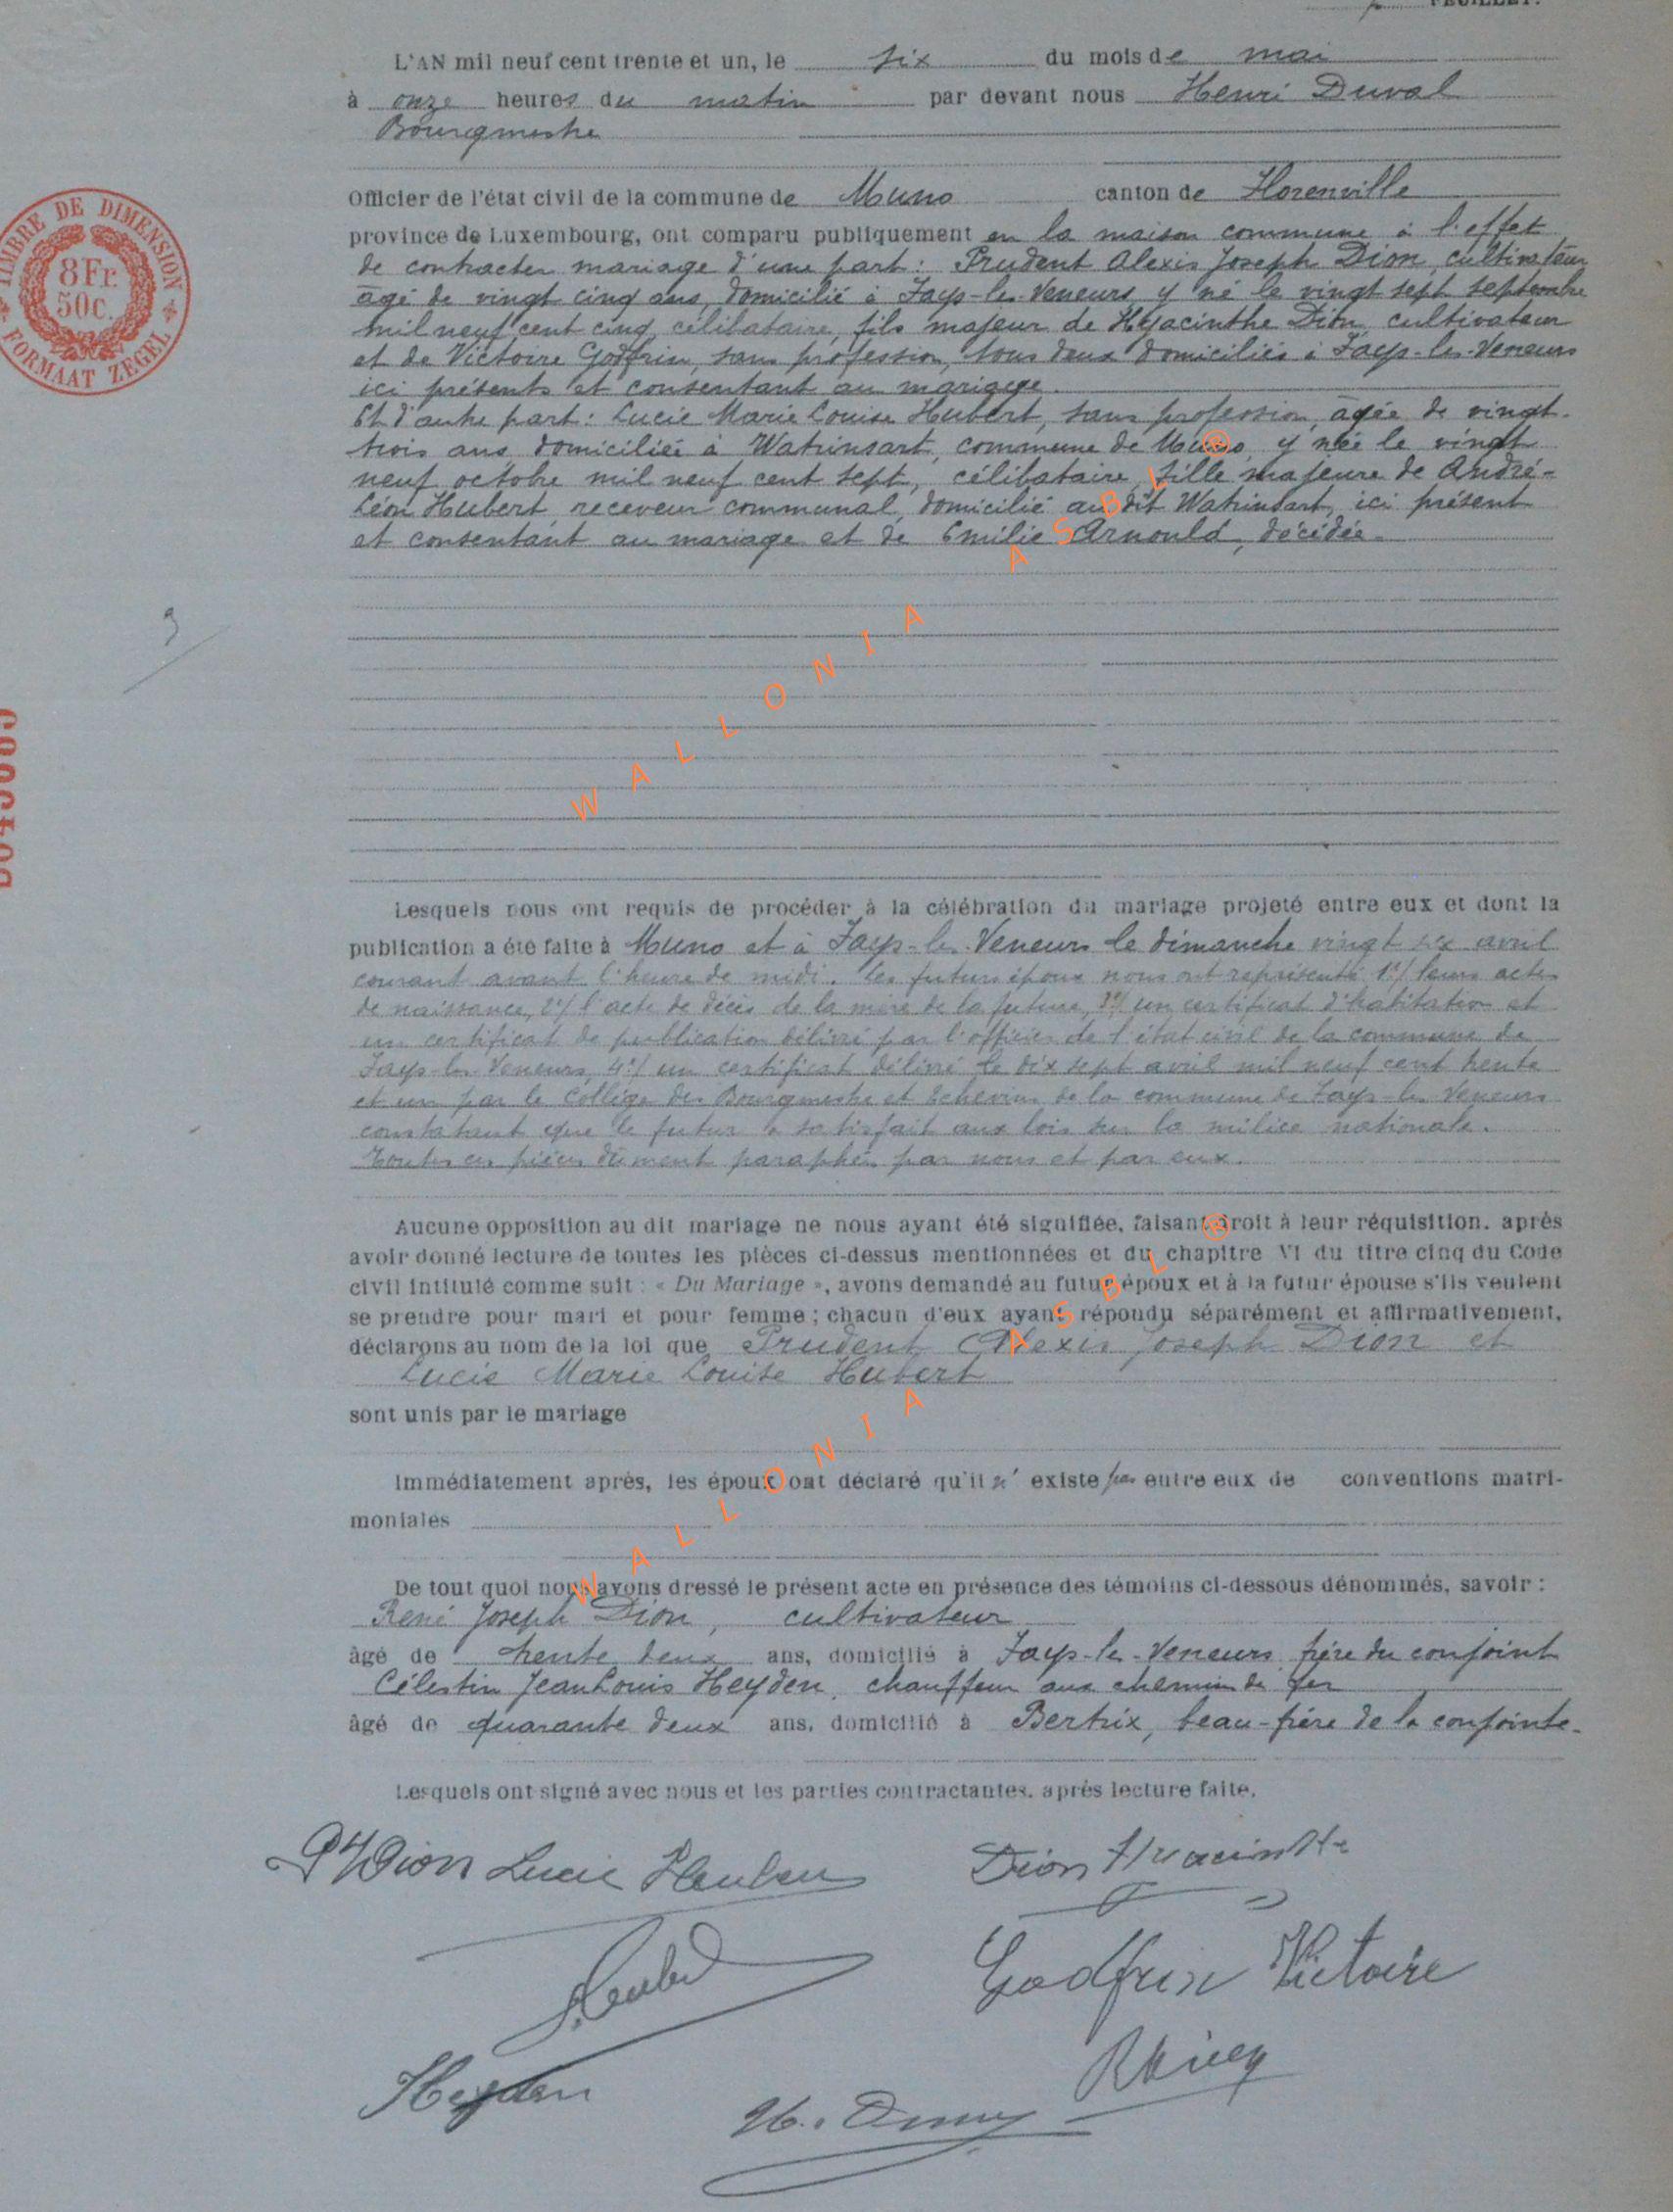 FEUILLET.
L'AN mil neuf cent trente et un, le six du mois de mai
à onze heures du matin par devant nous Henri Duval
Bourgmestre
Officier de l'état civil de la commune de Muno canton de Florenville
province de Luxembourg, ont comparu publiquement en la maison commune à l'effet
de contracter mariage d'une part : Prudent Alexis Joseph Dion, cultivateur
âgé de vingt cinq ans, domicilié à Fays-les-Veneurs y né le vingt sept septembre
mil neuf cent cinq, célibataire, fils majeur de Hyacinthe Dion, cultivateur
et de Victoire Godfrin, sans profession, tous deux domiciliés à Fays-les-Veneurs
ici présents et consentant au mariage.
Et d'autre part : Lucie Marie Louise Hubert, sans profession, âgée de vingt-
trois ans, domiciliée à Watrinsart, commune de Muno, y née le vingt
neuf octobre mil neuf cent sept, célibataire, fille majeure de André-
Léon Hubert, receveur communal, domicilié au dit Watrinsart, ici présent
et consentant au mariage et de Emilie Arnould, décédée.
TIMBRE DE DIMENSION
8Fr.
50c.
FORMAAT ZEGEL
3
WALLONIA ASBL ®
Lesquels nous ont requis de procéder à la célébration du mariage projeté entre eux et dont la
publication a été faite à Muno et à Fays-les-Veneurs le dimanche vingt six avril
courant avant l'heure de midi. Les futurs époux nous ont représenté 1°/ leurs actes
de naissance, 2°/ l'acte de décès de la mère de la future, 3°/ un certificat d'habitation et
un certificat de publication délivré par l'officier de l'état civil de la commune de
Fays-les-Veneurs, 4°/ un certificat délivré le dix sept avril mil neuf cent trente
et un par le Collège des Bourgmestre et Echevins de la commune de Fays-les-Veneurs
constatant que le futur a satisfait aux lois sur la milice nationale.
Toutes ces pièces dûment paraphées par nous et par eux.
Aucune opposition au dit mariage ne nous ayant été signifiée, faisant droit à leur réquisition, après
avoir donné lecture de toutes les pièces ci-dessus mentionnées et du chapitre VI du titre cinq du Code
civil intitulé comme suit : « Du Mariage », avons demandé au futur époux et à la futur épouse s'ils veulent
se prendre pour mari et pour femme ; chacun d'eux ayant répondu séparément et affirmativement,
déclarons au nom de la loi que Prudent Alexis Joseph Dion et
Lucie Marie Louise Hubert
sont unis par le mariage
WALLONIA ASBL ®
Immédiatement après, les époux ont déclaré qu'il n' existe pas entre eux de conventions matri-
moniales
De tout quoi nous avons dressé le présent acte en présence des témoins ci-dessous dénommés, savoir :
René Joseph Dion, cultivateur
âgé de trente deux ans, domicilié à Fays-les-Veneurs, frère du conjoint
Célestin Jean Louis Heyden, chauffeur aux chemin de fer
âgé de quarante deux ans, domicilié à Bertrix, beau-frère de la conjointe.
Lesquels ont signé avec nous et les parties contractantes, après lecture faite.
Dion Lucie Hubert Dion Hyacinthe
Hubert
Godfrin Victoire
Heyden
H. Duval